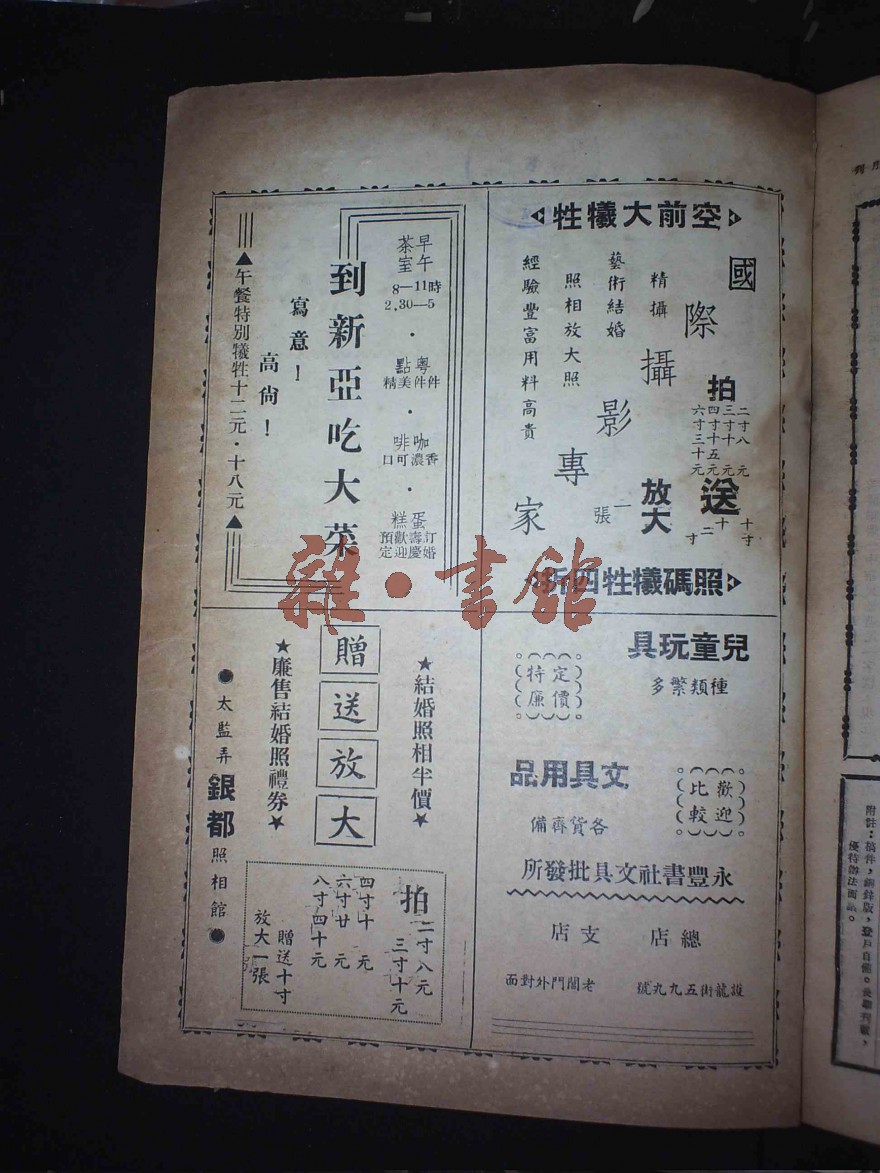 空前大犧牲
國際攝影專家
精攝
藝術結婚
照相放大照
經驗豐富用料高貴
拍
二寸八元
三寸十元
四寸十五元
六寸三十元
送
十寸
十二寸
放大
一張
照碼犧牲四折
早午茶室
8—11時
2.30—5
粵點
件件精美
咖啡
香濃可口
蛋糕
訂婚壽慶歡迎預定
到新亞吃大菜
寫意！
高尙！
▲午餐特別犧牲十二元·十八元▲
兒童玩具
種類繁多
定價特廉
文具用品
歡迎比較
各貨齊備
永豐書社文具批發所
總店
護龍街五九九號
支店
老閶門外對面
★結婚照相半價★
贈送放大
★廉售結婚照禮券★
拍
二寸八元
三寸十元
四寸十元
六寸廿元
八寸四十元
贈送十寸
放大一張
●太監弄銀都照相館●
雜·書館
附註：稿件，鋅版，登戶自備。長期刊載，
優待辦法面議。